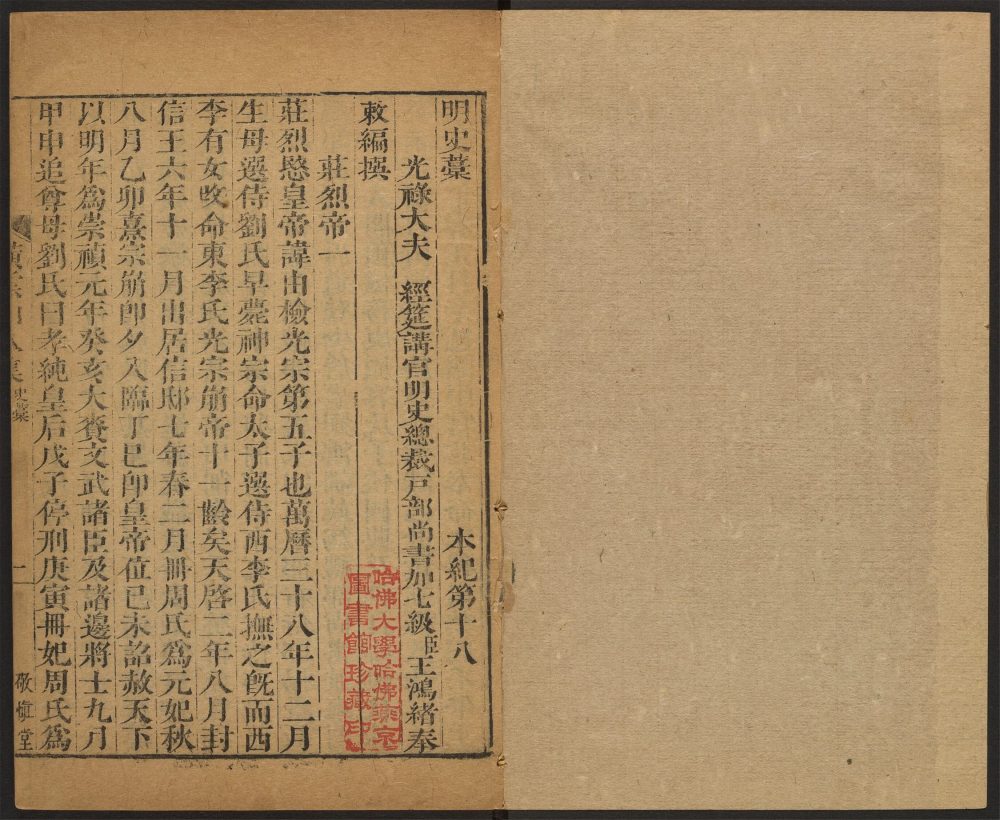 明史藁　本紀第十八
光祿大夫　經筵講官明史總裁戶部尚書加七級臣王鴻緒奉
敕編撰
莊烈帝一
莊烈愍皇帝諱由檢光宗第五子也萬曆三十八年十二月
生母選侍劉氏早薨神宗命太子選侍西李氏撫之旣而西
李有女改命東李氏光宗崩帝十一齡矣天啓二年八月封
信王六年十一月出居信邸七年春二月冊周氏爲元妃秋
八月乙卯熹宗崩卽夕入臨丁巳卽皇帝位己未詔赦天下
以明年爲崇禎元年癸亥大賚文武諸臣及諸邊將士九月
甲申追尊母劉氏曰孝純皇后戊子停刑庚寅冊妃周氏爲
史藁
一
敬愼堂
哈佛大學哈佛燕京
圖書館珍藏印